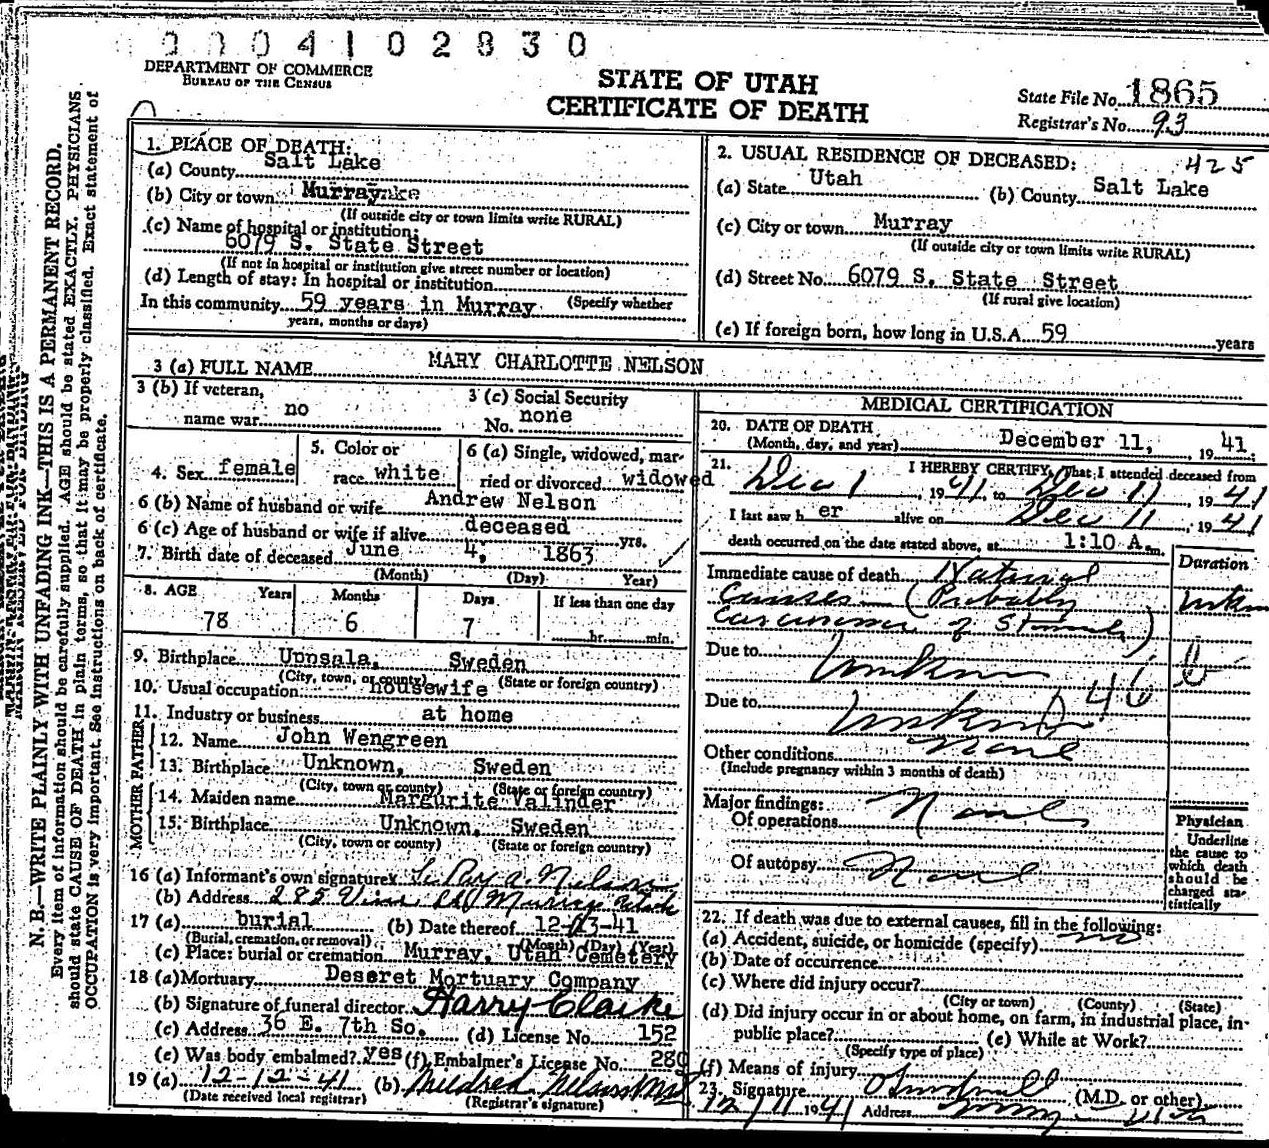 0004102830
DEPARTMENT OF COMMERCE
BUREAU OF THE CENSUS
STATE OF UTAH
CERTIFICATE OF DEATH
State File No. 1865
Registrar's No. 93
N. B.—WRITE PLAINLY WITH UNFADING INK—THIS IS A PERMANENT RECORD.
Every item of information should be carefully supplied. AGE should be stated EXACTLY. PHYSICIANS
should state CAUSE OF DEATH in plain terms, so that it may be properly classified. Exact statement of
OCCUPATION is very important. See instructions on back of certificate.
1. PLACE OF DEATH:
(a) County Salt Lake
(b) City or town Murray
(If outside city or town limits write RURAL)
(c) Name of hospital or institution:
6079 S. State Street
(If not in hospital or institution give street number or location)
(d) Length of stay: In hospital or institution
In this community 59 years in Murray (Specify whether
years, months or days)
2. USUAL RESIDENCE OF DECEASED: 425
(a) State Utah (b) County Salt Lake
(c) City or town Murray
(If outside city or town limits write RURAL)
(d) Street No. 6079 S. State Street
(If rural give location)
(e) If foreign born, how long in U.S.A. 59 years
3 (a) FULL NAME MARY CHARLOTTE NELSON
3 (b) If veteran,
name war no
3 (c) Social Security
No. none
4. Sex female
5. Color or
race white
6 (a) Single, widowed, mar-
ried or divorced widowed
6 (b) Name of husband or wife Andrew Nelson
6 (c) Age of husband or wife if alive deceased yrs.
7. Birth date of deceased June 4, 1863
(Month) (Day) Year)
8. AGE Years Months Days If less than one day
78 6 7 hr. min.
9. Birthplace Upnsala, Sweden
(City, town, or county) (State or foreign country)
10. Usual occupation housewife
11. Industry or business at home
FATHER
12. Name John Wengreen
13. Birthplace Unknown, Sweden
(City, town or county) (State or foreign country)
MOTHER
14. Maiden name Margurite Valinder
15. Birthplace Unknown, Sweden
(City, town or county) (State or foreign country)
16 (a) Informant's own signature x Le Roy A. Nelson
(b) Address 285 Vine St Murray Utah
17 (a) burial (b) Date thereof 12-13-41
(Burial, cremation, or removal) (Month) (Day) (Year)
(c) Place: burial or cremation Murray, Utah Cemetery
18 (a) Mortuary Deseret Mortuary Company
(b) Signature of funeral director Harry Clarke
(c) Address 36 E. 7th So. (d) License No. 152
(e) Was body embalmed? yes (f) Embalmer's License No. 280
19 (a) 12-12-41 (b) Mildred Nelson
(Date received local registrar) (Registrar's signature)
MEDICAL CERTIFICATION
20. DATE OF DEATH
(Month, day, and year) December 11, 1941
21. I HEREBY CERTIFY, That I attended deceased from
Dec 1, 1941, to Dec 11, 1941
I last saw her alive on Dec 11, 1941
death occurred on the date stated above, at 1:10 A m.
Duration
Immediate cause of death Natural
Causes (Probably
Carcinoma of Stomach)
Due to Unknown
46 b
Due to Unknown
Other conditions None
(Include pregnancy within 3 months of death)
Major findings:
Of operations None
Of autopsy None
Physician
Underline
the cause to
which death
should be
charged sta-
tistically
22. If death was due to external causes, fill in the following:
(a) Accident, suicide, or homicide (specify) no
(b) Date of occurrence
(c) Where did injury occur?
(City or town) (County) (State)
(d) Did injury occur in or about home, on farm, in industrial place, in-
public place? (e) While at Work?
(Specify type of place)
(f) Means of injury
23. Signature (M.D. or other)
12/11 1941 Address Murray Utah